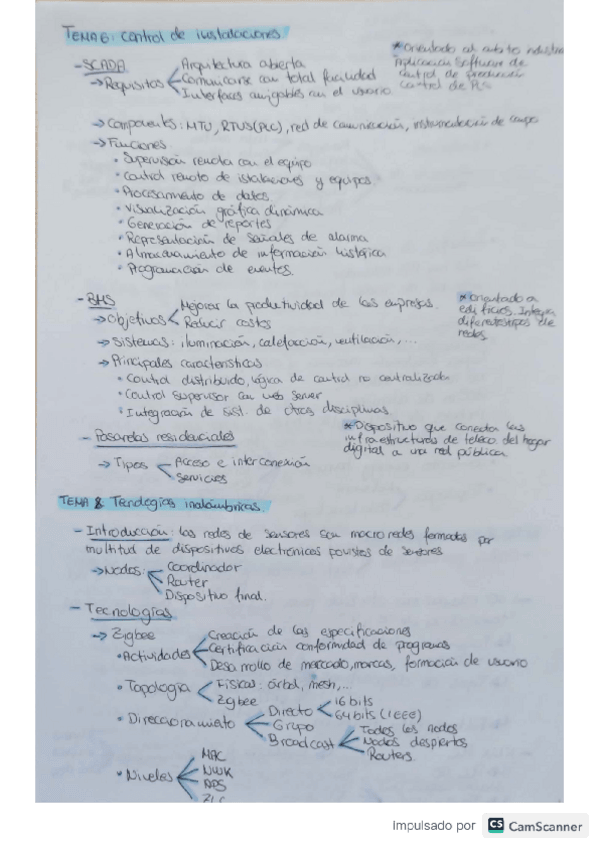 TEMA 6: Control de instalaciones
- SCADA
*Orientado al ámbito industr
Aplicación software de
control de producción
control de PLC
→ Requisitos
Arquitectura abierta
Comunicarse con total facilidad
Interfaces amigables con el usuario
→ Componentes: MTU, RTUS(PLC), red de comunicación, instrumentación de campo
→ Funciones
• Supervisión remota con el equipo
• Control remoto de istalaciones y equipos.
• Procesamiento de datos.
• Visualización gráfica dinámica
• Generación de reportes
• Representación de señales de alarma
• Almacenamiento de información histórica
• Programación de eventos.
- BMS
*orientado a
edificios. Integra
diferentes tipos de
redes.
→ Objetivos
Mejorar la productividad de las empresas.
Reducir costes
→ Sistemas: iluminación, calefacción, ventilación,...
→ Principales características
• Control distribuido, lógica de control no centralizada
• Control supervisor con web server
• Integración de sist. de otras disciplinas.
- Pasarelas residenciales
*Dispositivo que conecta las
infraestructuras de teleco. del hogar
digital a una red pública.
→ Tipos
Acceso e interconexión
Servicios
TEMA 8: Tecnologías inalámbricas.
- Introducción: las redes de sensores son macro redes formadas por
multitud de dispositivos electrónicos provistos de sensores
→ Nodos:
Coordinador
Router
Dispositivo final.
- Tecnologías
→ Zigbee
• Actividades
Creación de las especificaciones
Certificación conformidad de programas
Desarrollo de mercado, marcas, formación de usuario
• Topología
Físicas: árbol, mesh,...
Zigbee
• Direccionamiento
Directo
16 bits
64 bits (IEEE)
Grupo
Broadcast
Todos los nodos
Nodos despiertos
Routers.
• Niveles
MAC
NWK
APS
Impulsado por CS CamScanner